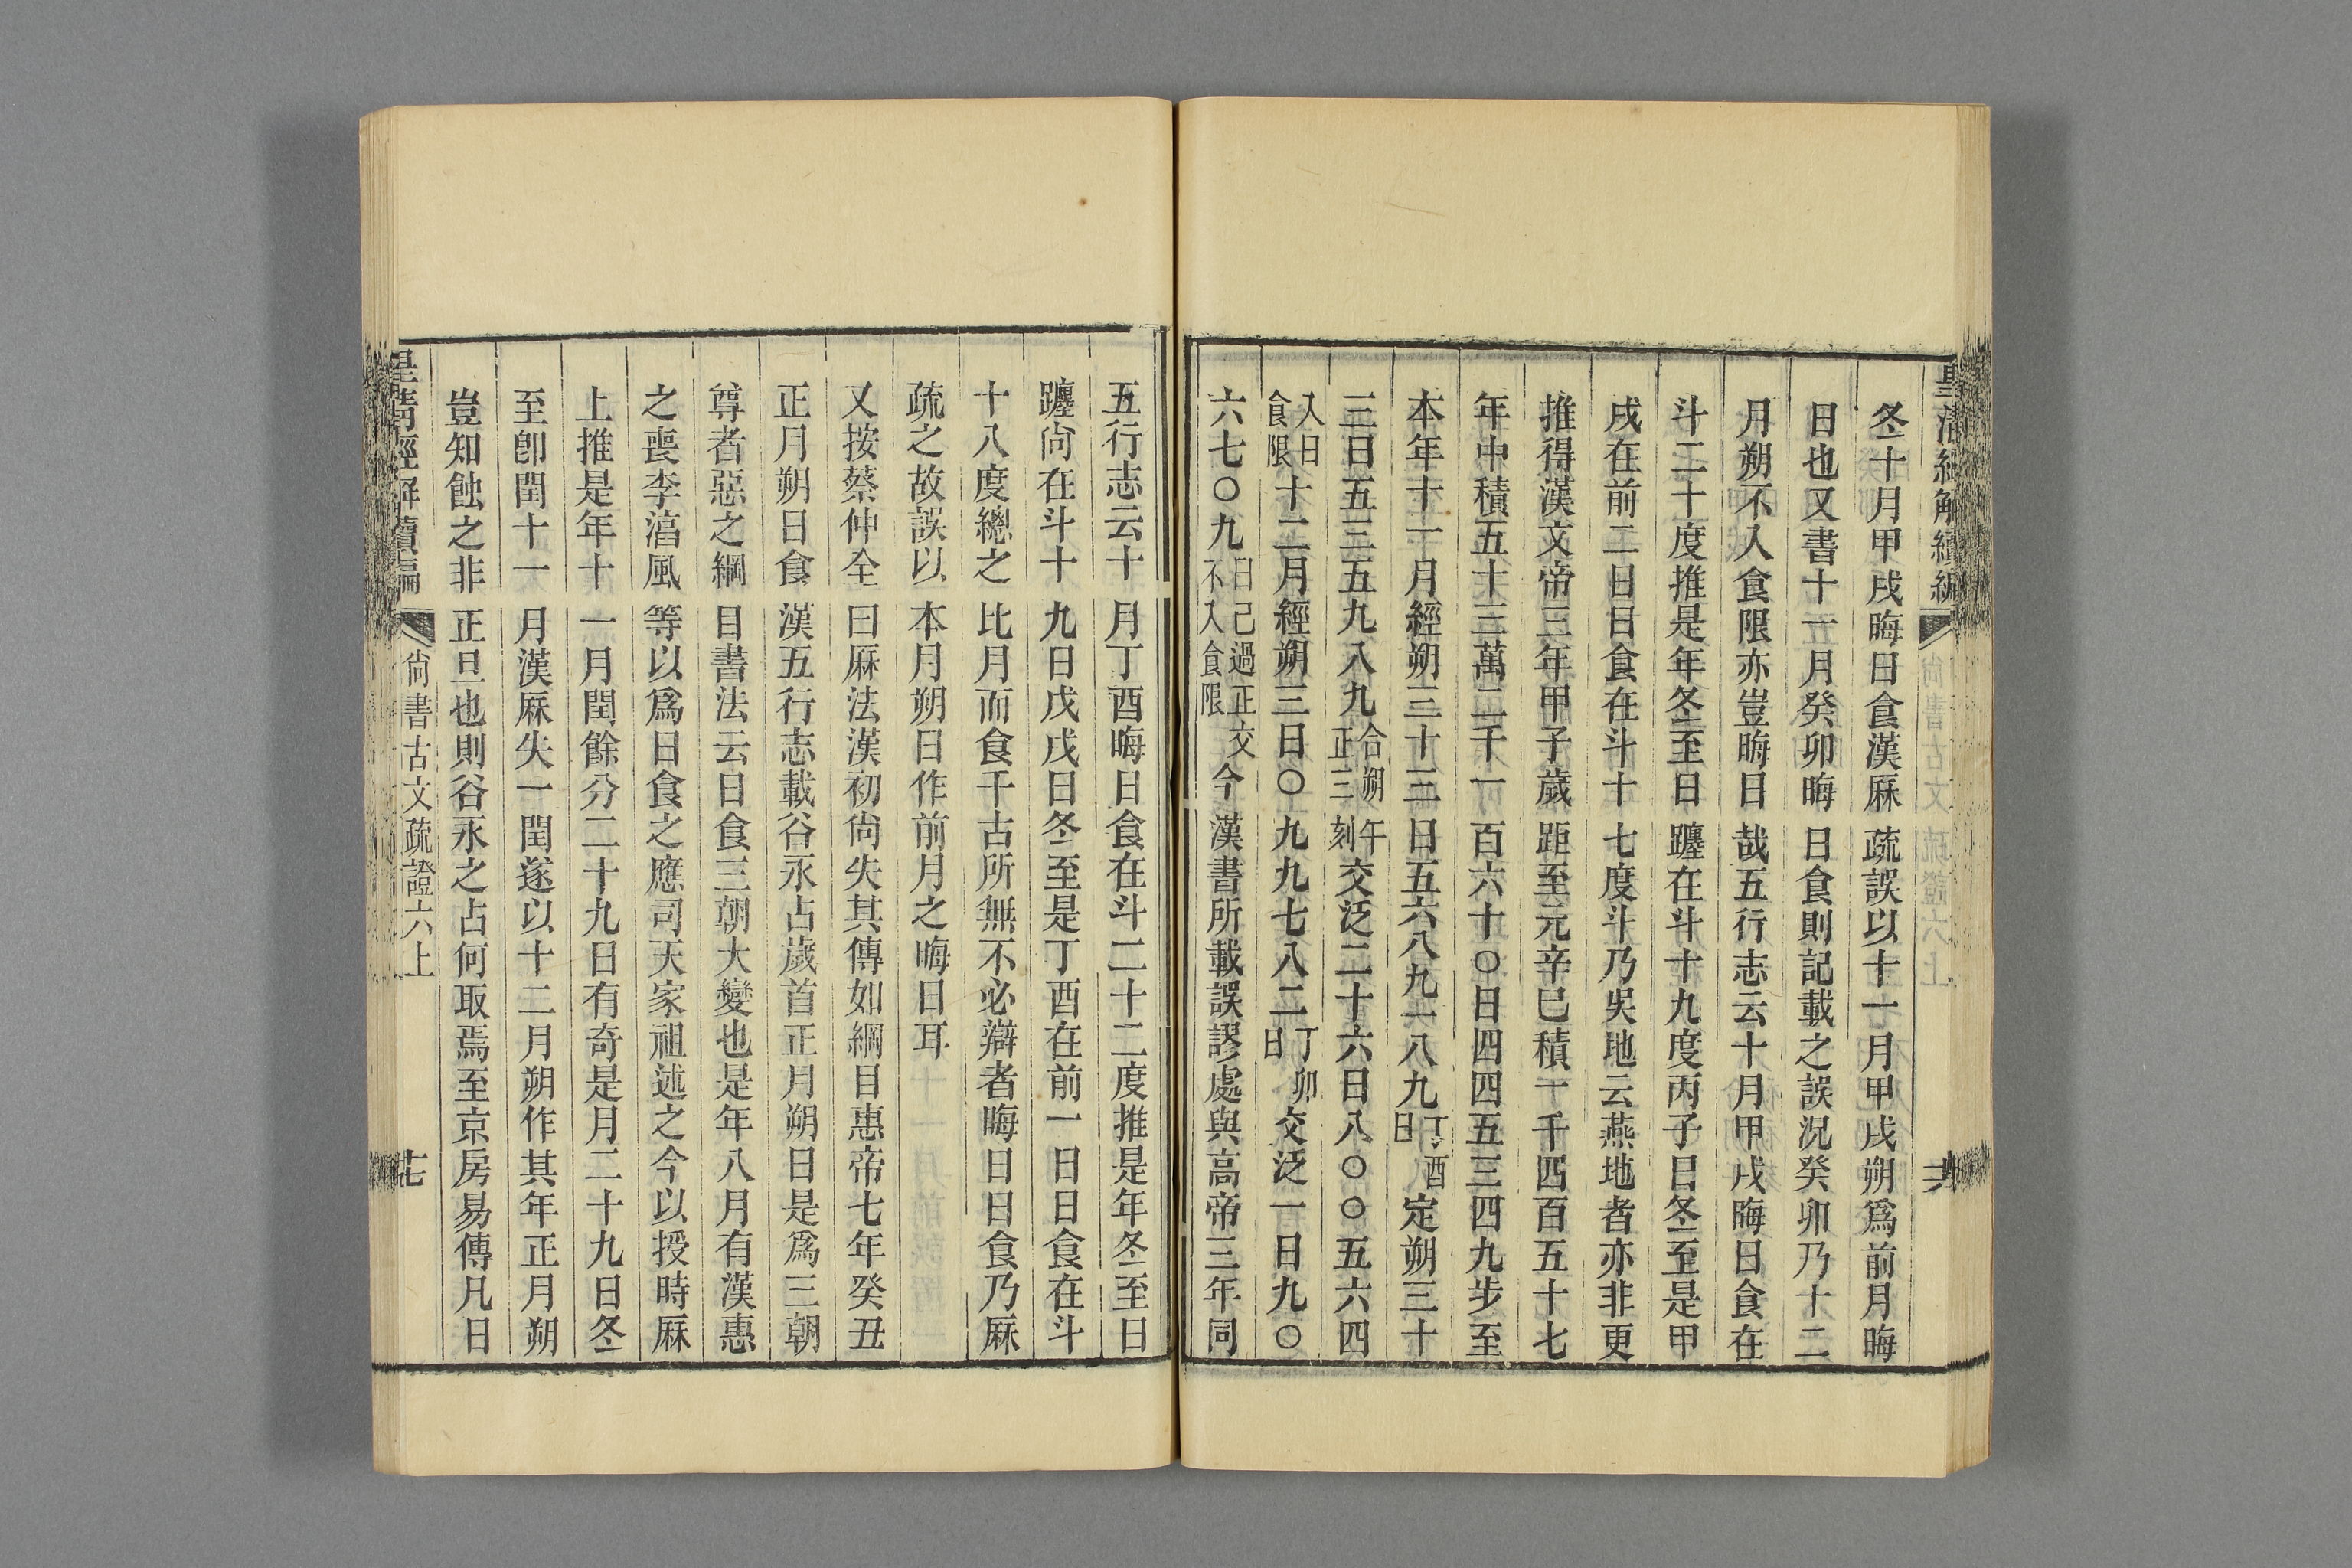 冬十月甲戌晦日食漢厤疏誤以十一月甲戌朔爲前月晦
日也又書十一月癸卯晦日食則記載之誤況癸卯乃十二
月朔不入食限亦豈晦日哉五行志云十月甲戌晦日食在
斗二十度推是年冬至日躔在斗十九度丙子日冬至是甲
戌在前二日日食在斗十七度斗乃吳地云燕地者亦非更
推得漢文帝三年甲子歲距至元辛巳積一千四百五十七
年中積五十三萬二千一百六十〇日四四五三四九步至
本年十一月經朔三十三日五六八九一八九丁酉日定朔三十
三日五三五九八九合朔午正三刻交泛二十六日八〇〇五六四
入日食限十二月經朔三日〇九九七八二丁卯日交泛一日九〇
六七〇九日已過正交不入食限今漢書所載誤謬處與高帝三年同
五行志云十月丁酉晦日食在斗二十二度推是年冬至日
躔尙在斗十九日戊戌日冬至是丁酉在前一日日食在斗
十八度總之比月而食千古所無不必辯者晦日日食乃厤
疏之故誤以本月朔日作前月之晦日耳
又按蔡仲全曰厤法漢初尙失其傳如綱目惠帝七年癸丑
正月朔日食漢五行志載谷永占歲首正月朔日是爲三朝
尊者惡之綱目書法云日食三朝大變也是年八月有漢惠
之喪李湻風等以爲日食之應司天家祖述之今以授時厤
上推是年十一月閏餘分二十九日有奇是月二十九日冬
至卽閏十一月漢厤失一閏遂以十二月朔作其年正月朔
豈知蝕之非正旦也則谷永之占何取焉至京房易傳凡日
皇淸經解續編
尙書古文疏證六上